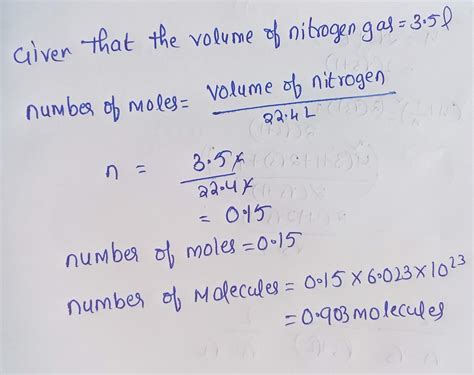 Given that the volume of nitrogen gas = 3.5l
number of moles = volume of nitrogen / 22.4 L
n = 3.5l / 22.4l
= 0.15
number of moles = 0.15
number of Molecules = 0.15 × 6.023 × 10²³
= 0.903 molecules